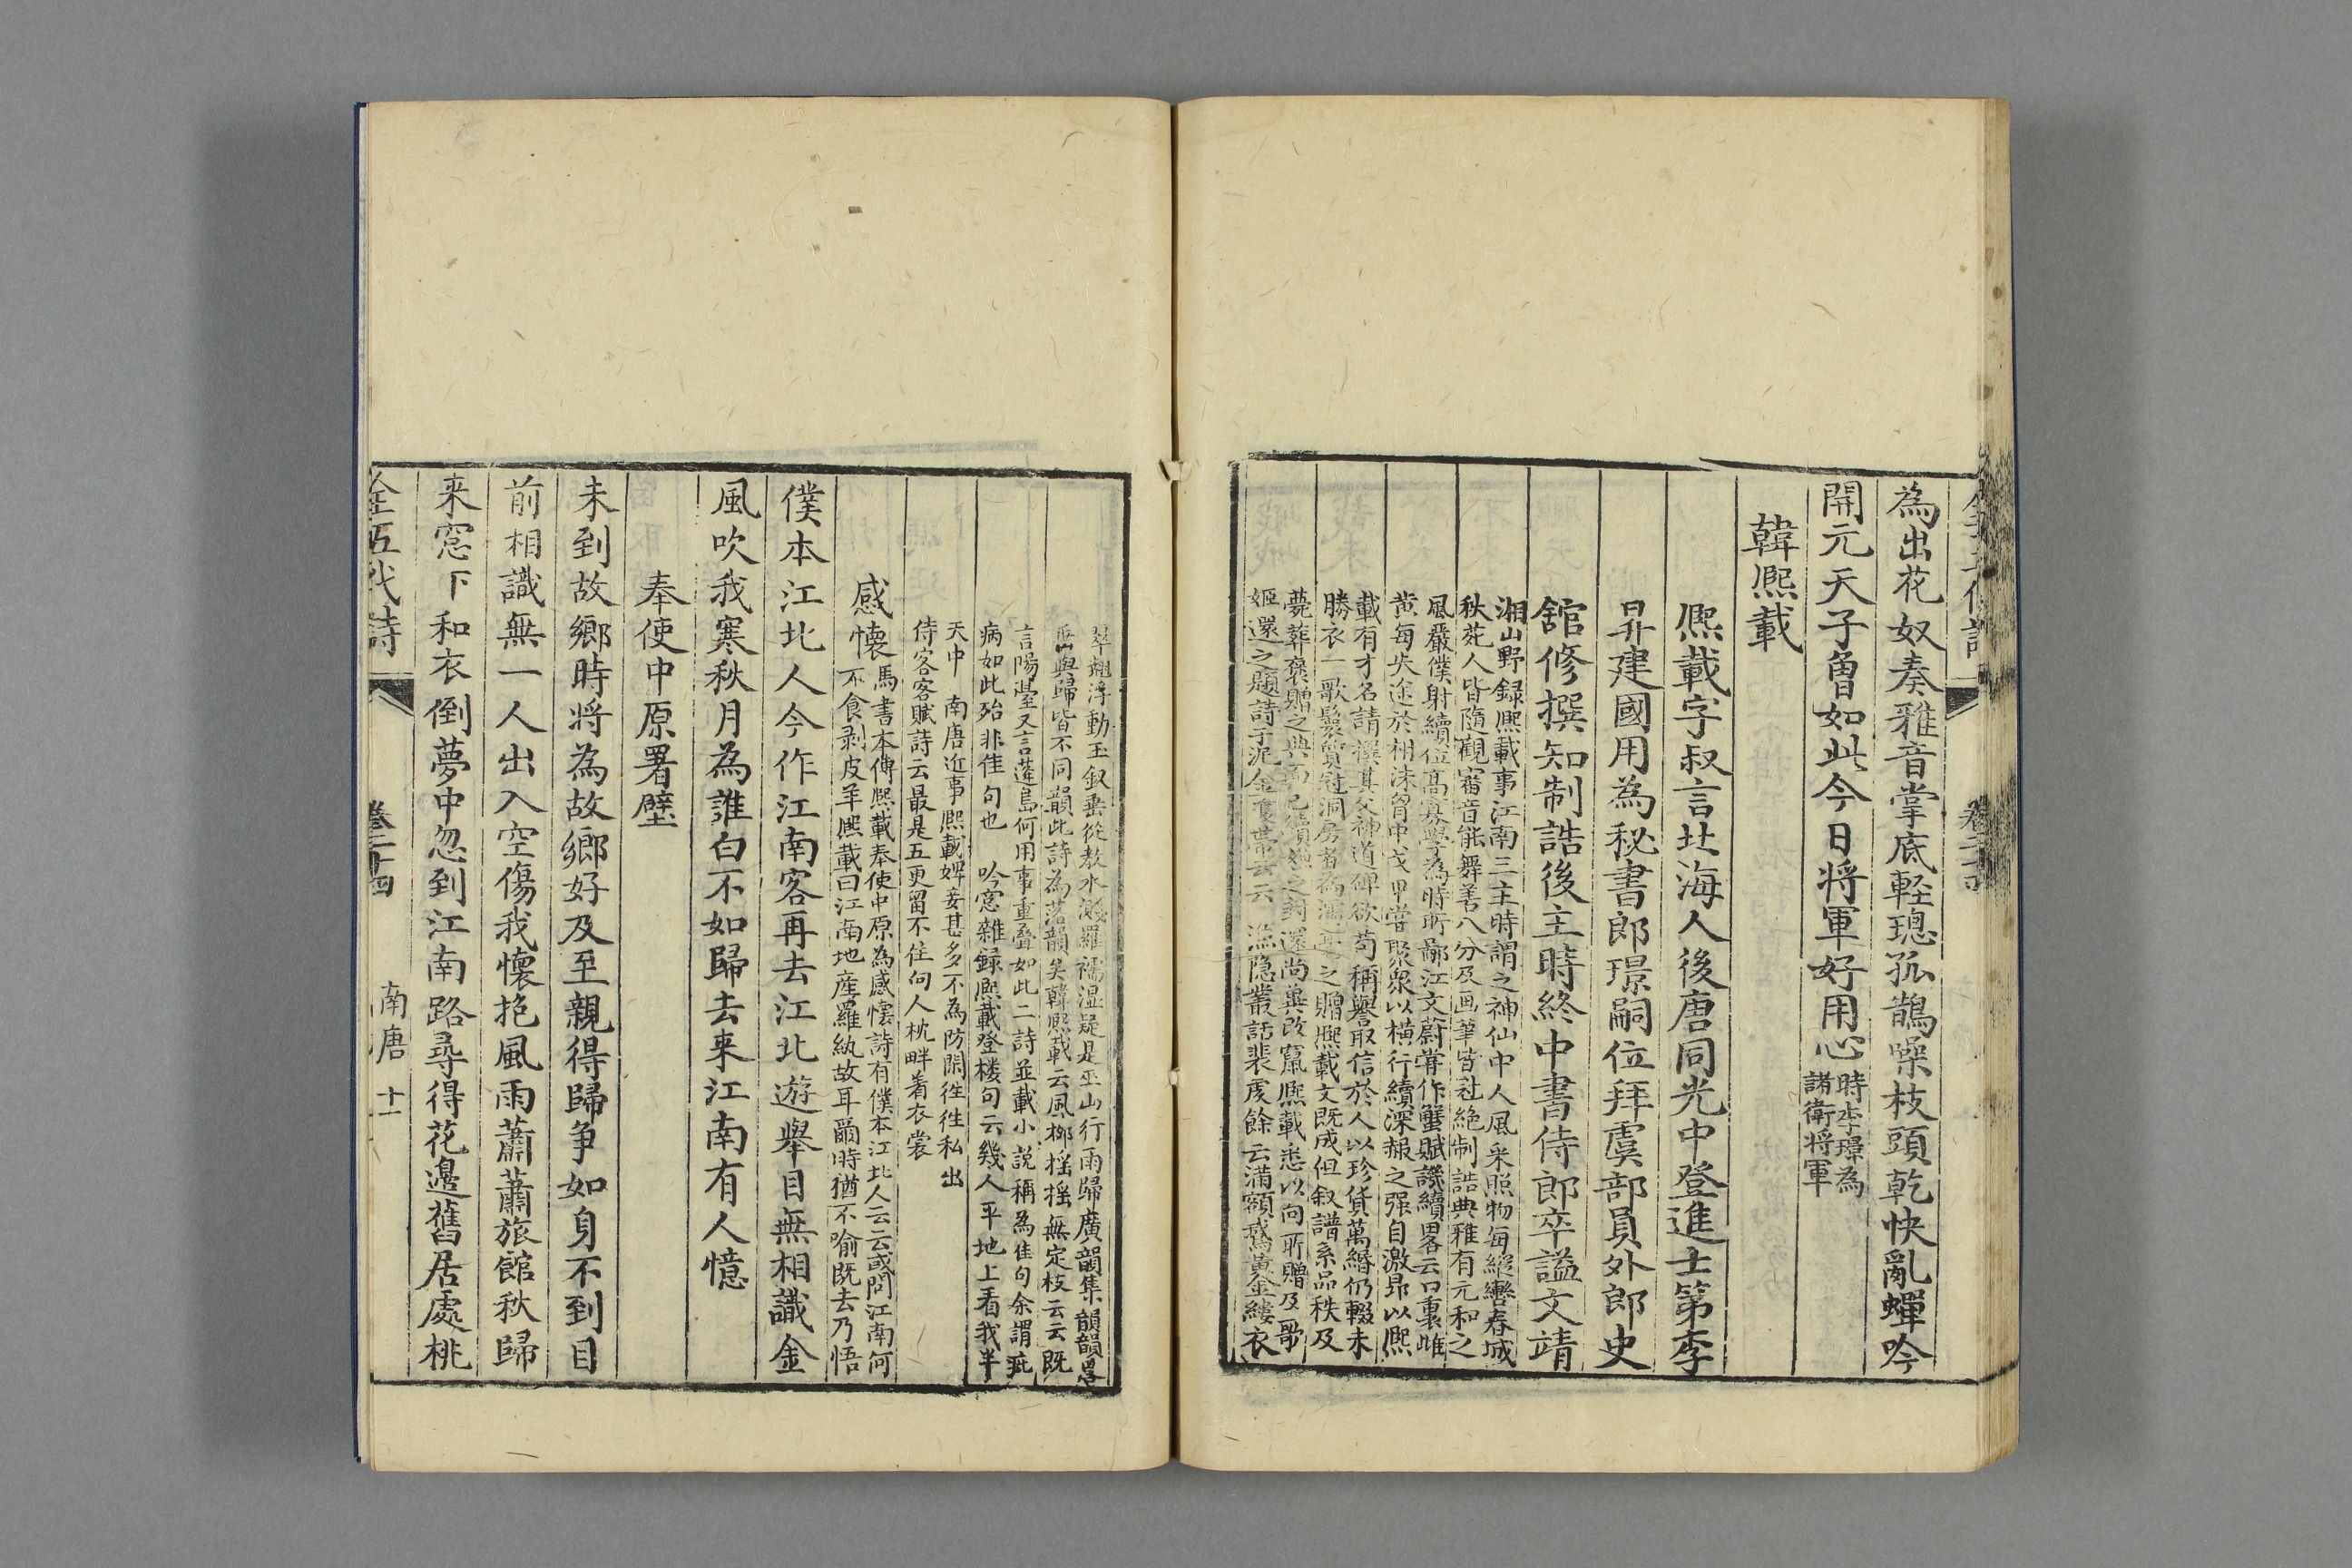 為出花奴奏雅音掌底軽璁孤鵲噪枝頭乾快亂蟬吟
開元天子曽如此今日将軍好用心
時李璟為
諸衛将軍
韓熈載
熈載字叔言北海人後唐同光中登進士第李
昇建國用為秘書郎璟嗣位拜虞部員外郎史
舘修撰知制誥後主時終中書侍郎卒謚文靖
湘山野録熈載事江南三主時謂之神仙中人風采照物每縱轡春城
秋苑人皆隨觀審音能舞善八分及画筆皆冠絶制誥典雅有元和之
風嚴僕射續位高寡學為時所鄙江文蔚甞作蟹賦譏續畧云口裏雌
黄每失途於相沫胷中戈甲甞聚衆以横行續深赧之强自激昂以熈
載有才名請撰其父神道碑欲苟稱譽取信於人以珍貨萬緡仍輟未
勝衣一歌鬟質冠洞房者為濡毫之贈熈載文既成但叙譜系品秩及
薨葬褒贈之典而已續慊之封還尚兾改竄熈載悉以向所贈及歌
姬還之題詩于泥金帶云云 漁隐叢話裴䖍餘云滿額鵞黄金縷衣
翠翹浮動玉釵垂從教水濺羅襦溼疑是巫山行雨歸廣韻集韻韻畧
垂與歸皆不同韻此詩為落韻矣韓熈載云風栁摇摇無定枝云云既
言陽臺又言蓬島何用事重叠如此二詩並載小説稱為佳句余謂疵
病如此殆非佳句也 吟窓雜録熈載登楼句云幾人平地上看我半
天中 南唐近事熈載婢妾甚多不為防閑徃徃私出
侍客客賦詩云最是五更留不住向人枕畔着衣裳
感懷
馬書本傳熈載奉使中原為感懷詩有僕本江北人云云或問江南何
不食剥皮羊熈載曰江南地産羅紈故耳爾時猶不喻既去乃悟
僕本江北人今作江南客再去江北遊舉目無相識金
風吹我寒秋月為誰白不如歸去来江南有人憶
奉使中原署壁
未到故鄉時将為故鄉好及至親得歸争如身不到目
前相識無一人出入空傷我懷抱風雨蕭蕭旅館秋歸
来窓下和衣倒夢中忽到江南路尋得花邉舊居處桃
全五代詩 卷二十四 南唐 十一